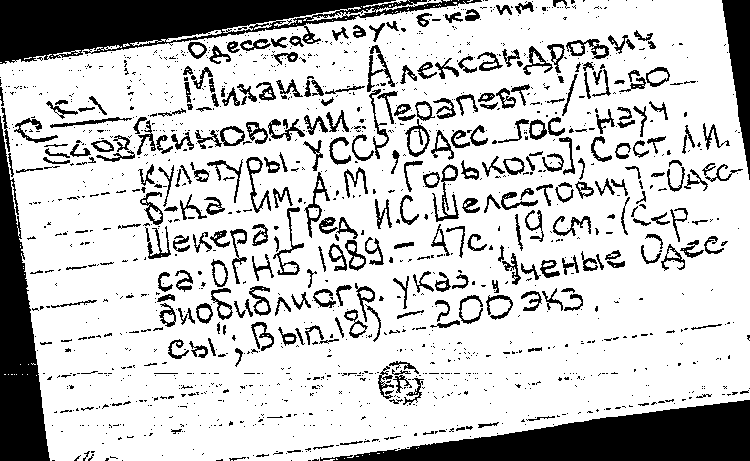 Одесская науч. б-ка им. А.
го.
К-1
С 5498
Михаил Александрович
Ясиновский: [Терапевт / М-во
культуры УССР, Одес. гос. науч.
б-ка им. А.М. Горького]; Сост. Л.И.
Шекера; [Ред. И.С. Шелестович].-Одес-
са: ОГНБ, 1989.- 47с.; 19 см.-(Сер.
биобиблиогр. указ. "Ученые Одес-
сы"; Вып.18) - 200 экз.